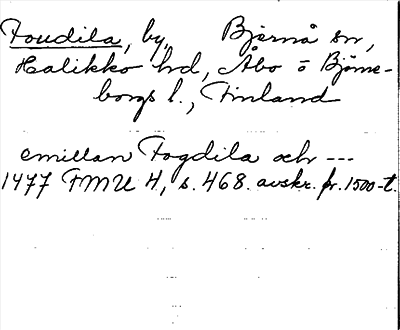 Foudila, by, Bjärnå sn,
Halikko hd, Åbo o Björne-
borgs l., Finland
emillan Fogdila och ---
1477 FMU 4, s. 468. avskr. fr. 1500-t.